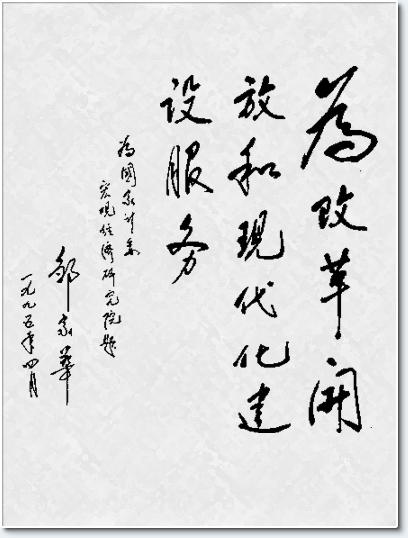 為改革開
放和現代化建
设服务
為國家计委
宏观经濟研究院题
邹家華
一九九五年四月